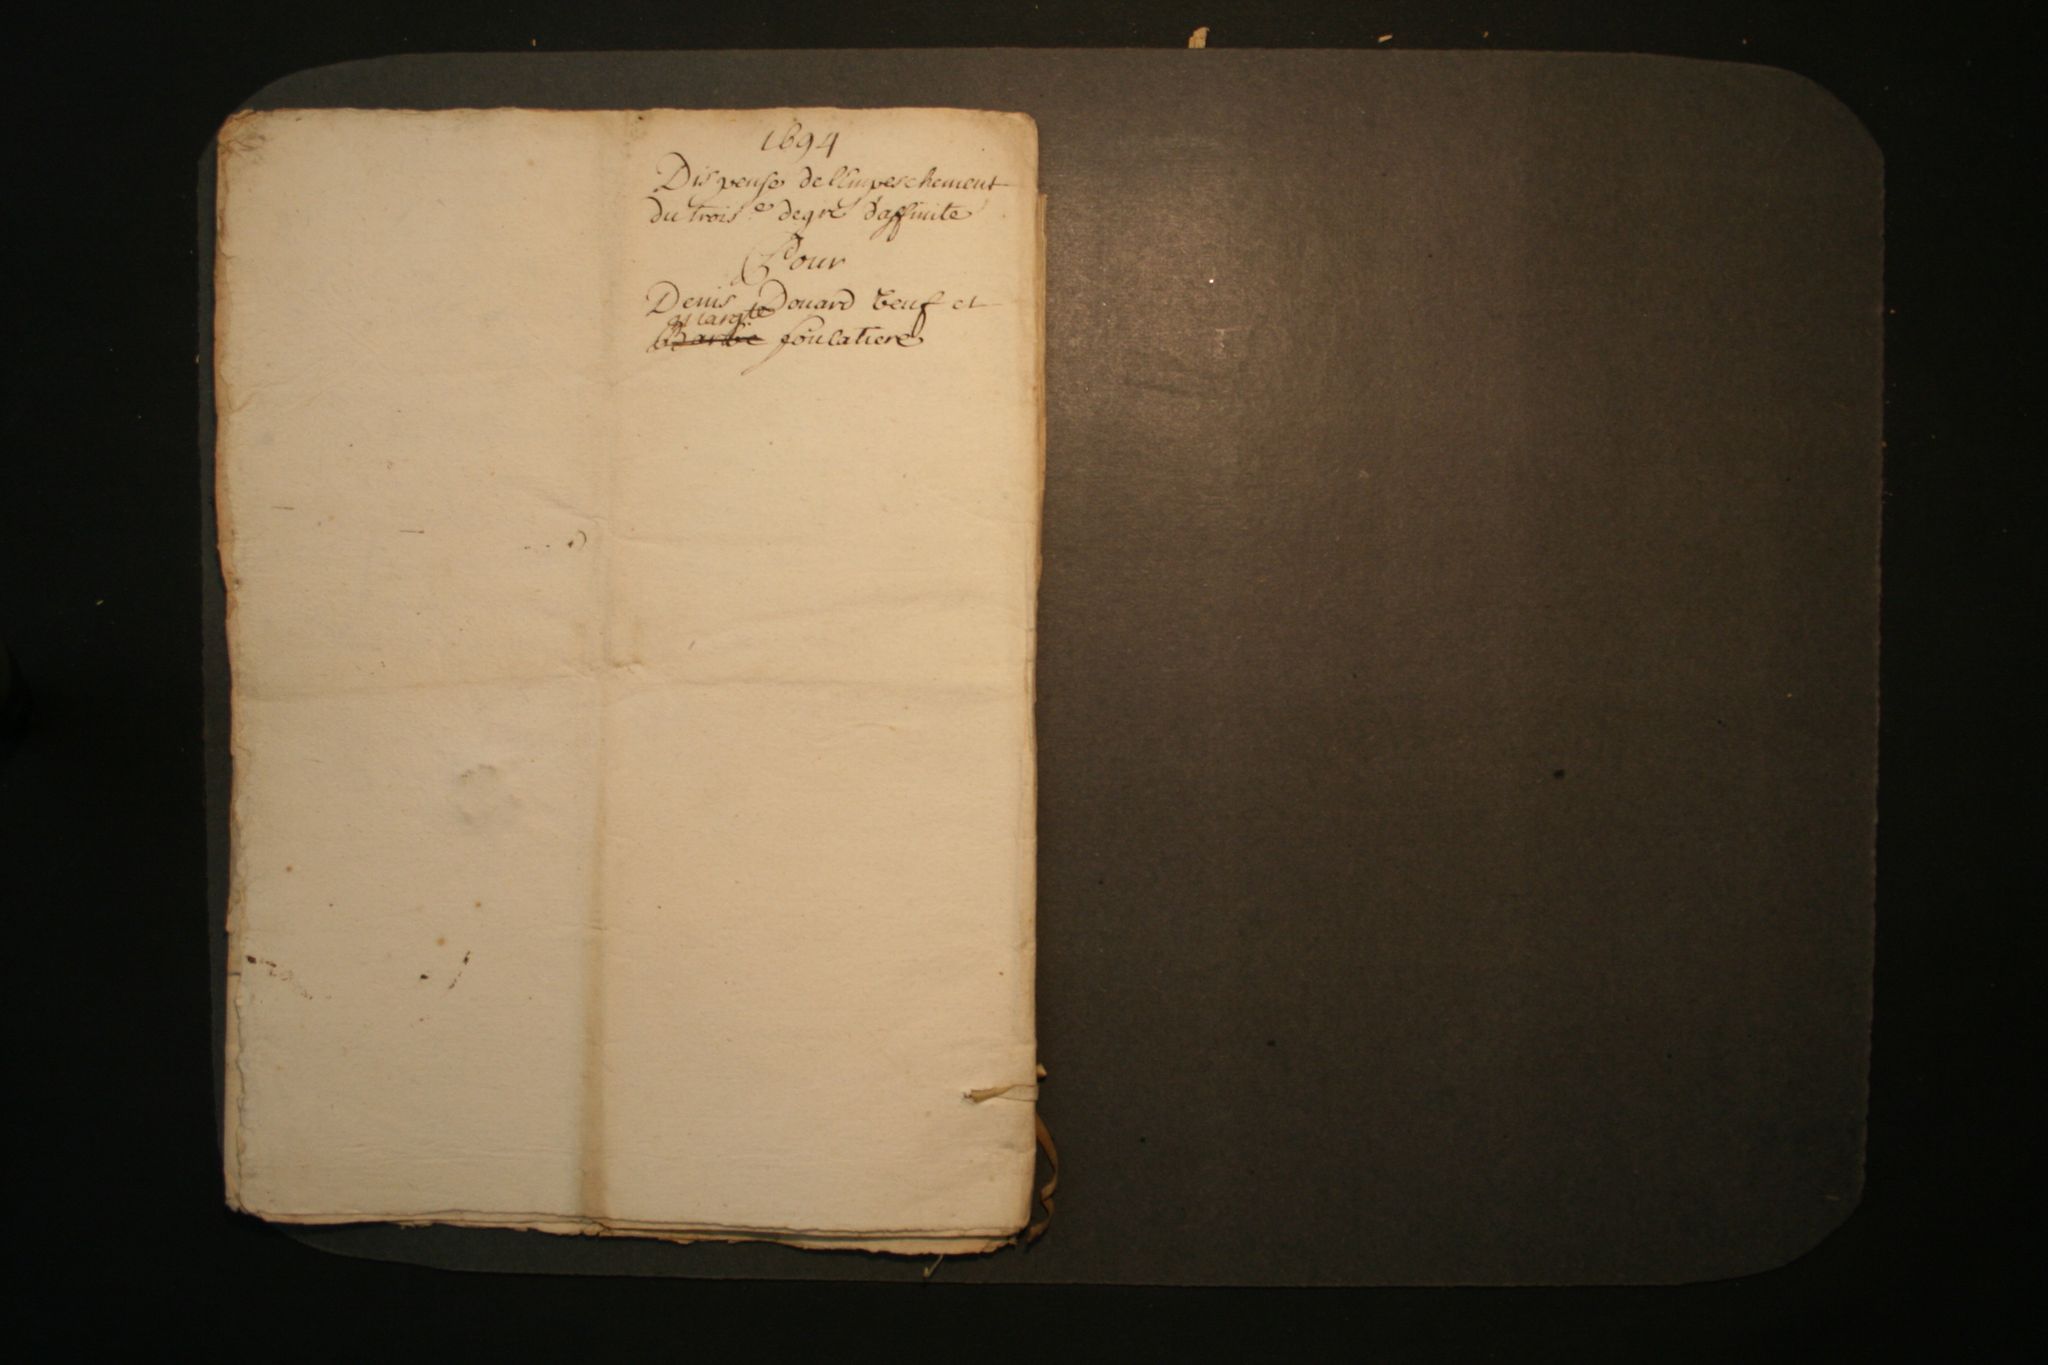 1694
Dispense de l'empeschement
du trois.e degré d'affinite
Pour
Denis Douard veuf et
Margte
Barbe foulatiere